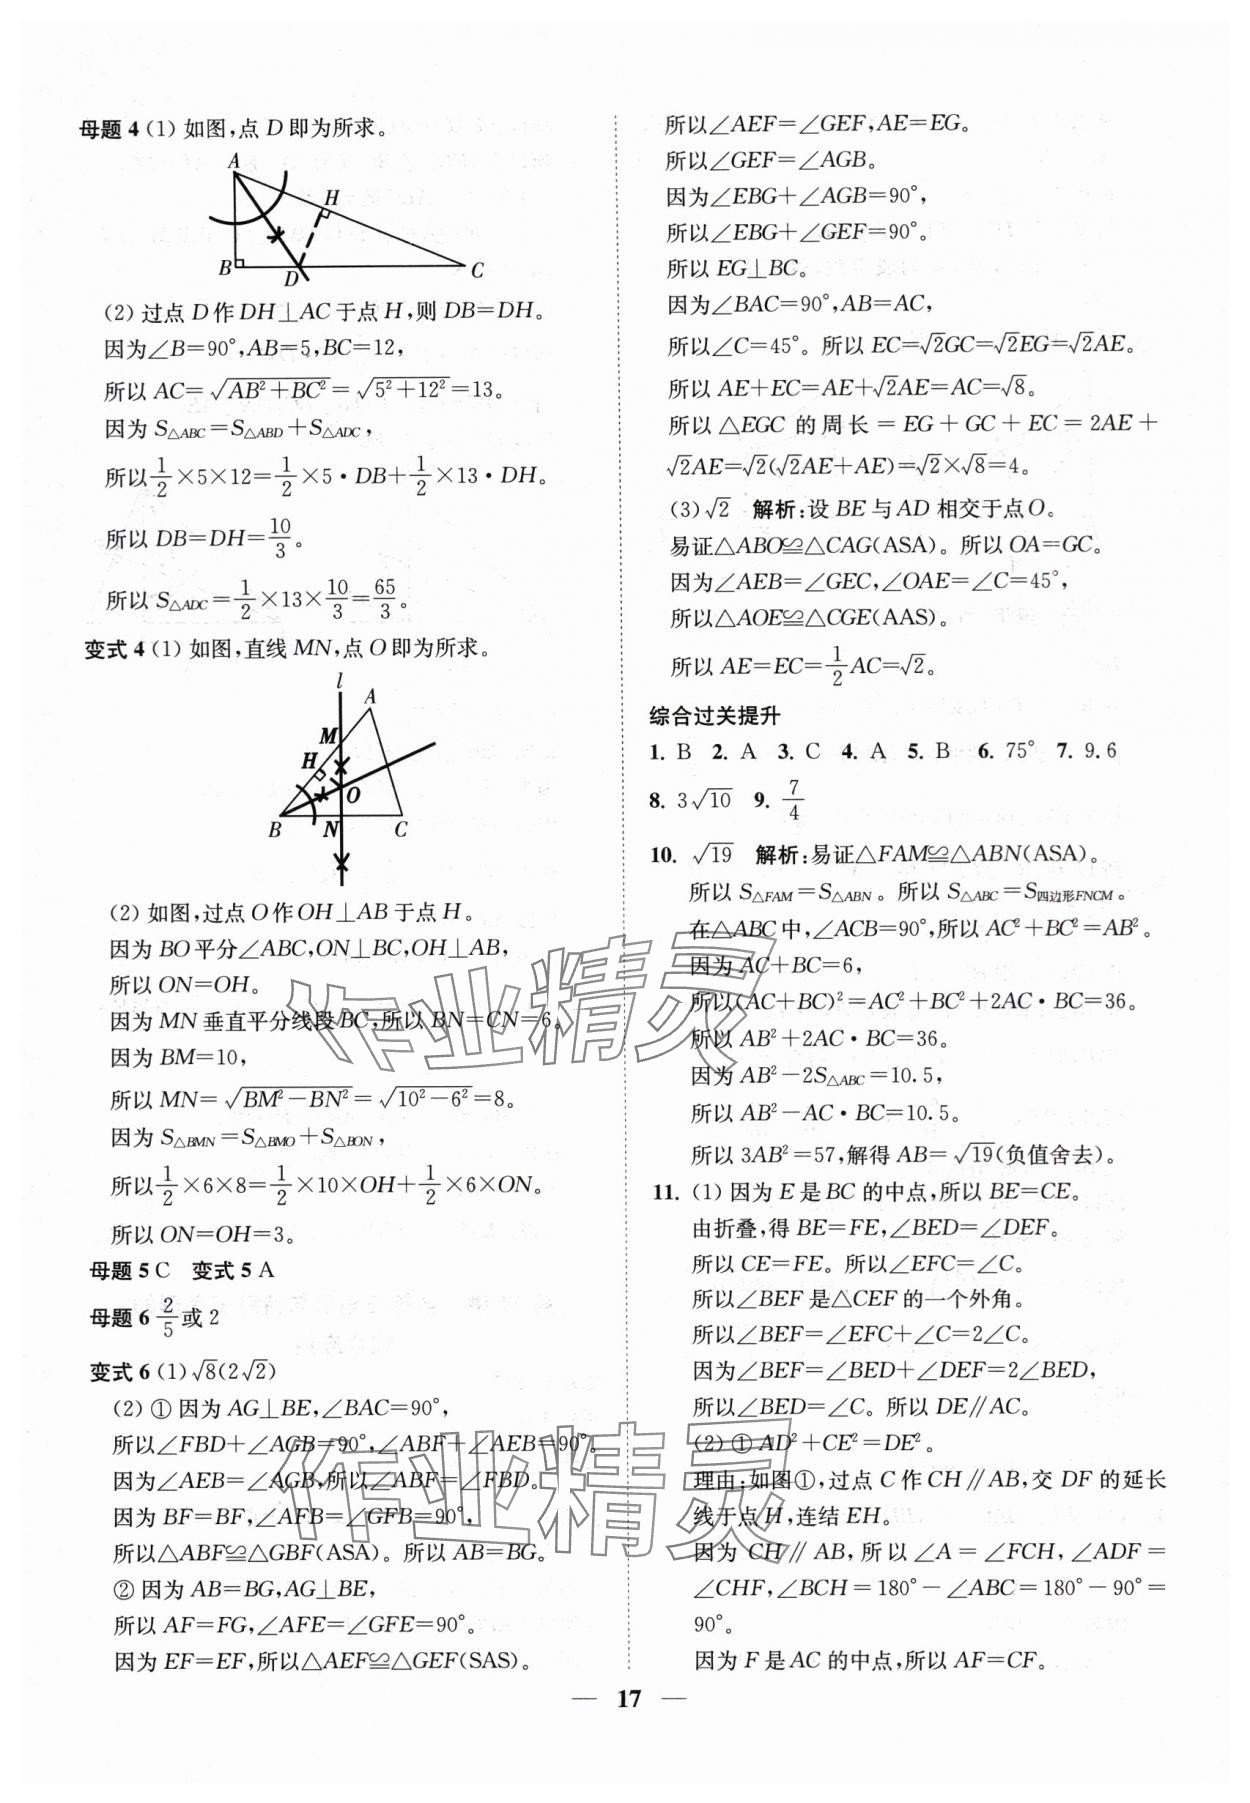 母题 4 (1) 如图,点 D 即为所求。
A
H
B
D
C
(2) 过点 D 作 DH⊥AC 于点 H,则 DB=DH。
因为∠B=90°,AB=5,BC=12,
所以 AC=√(AB²+BC²)=√(5²+12²)=13。
因为 S△ABC=S△ABD+S△ADC,
所以1/2×5×12=1/2×5·DB+1/2×13·DH。
所以 DB=DH=10/3。
所以 S△ADC=1/2×13×10/3=65/3。
变式 4 (1) 如图,直线 MN,点 O 即为所求。
l
A
M
H
O
B
N
C
(2) 如图,过点 O 作 OH⊥AB 于点 H。
因为 BO 平分∠ABC,ON⊥BC,OH⊥AB,
所以 ON=OH。
因为 MN 垂直平分线段 BC,所以 BN=CN=6。
因为 BM=10,
所以 MN=√(BM²-BN²)=√(10²-6²)=8。
因为 S△BMN=S△BMO+S△BON,
所以1/2×6×8=1/2×10×OH+1/2×6×ON。
所以 ON=OH=3。
母题 5 C 变式 5 A
母题 6 2/5或 2
变式 6 (1)√8(2√2)
(2) ① 因为 AG⊥BE,∠BAC=90°,
所以∠FBD+∠AGB=90°,∠ABF+∠AEB=90°。
因为∠AEB=∠AGB,所以∠ABF=∠FBD。
因为 BF=BF,∠AFB=∠GFB=90°,
所以△ABF≌△GBF(ASA)。所以 AB=BG。
② 因为 AB=BG,AG⊥BE,
所以 AF=FG,∠AFE=∠GFE=90°。
因为 EF=EF,所以△AEF≌△GEF(SAS)。
所以∠AEF=∠GEF,AE=EG。
所以∠GEF=∠AGB。
因为∠EBG+∠AGB=90°,
所以∠EBG+∠GEF=90°。
所以 EG⊥BC。
因为∠BAC=90°,AB=AC,
所以∠C=45°。所以 EC=√2GC=√2EG=√2AE。
所以 AE+EC=AE+√2AE=AC=√8。
所以 △EGC 的周长 = EG + GC + EC = 2AE +
√2AE=√2(√2AE+AE)=√2×√8=4。
(3)√2 解析:设 BE 与 AD 相交于点 O。
易证△ABO≌△CAG(ASA)。所以 OA=GC。
因为∠AEB=∠GEC,∠OAE=∠C=45°,
所以△AOE≌△CGE(AAS)。
所以 AE=EC=1/2AC=√2。
综合过关提升
1. B 2. A 3. C 4. A 5. B 6. 75° 7. 9.6
8. 3√10 9. 7/4
10. √19 解析:易证△FAM≌△ABN(ASA)。
所以 S△FAM=S△ABN。所以 S△ABC=S四边形FNCM。
在△ABC 中,∠ACB=90°,所以 AC²+BC²=AB²。
因为 AC+BC=6,
所以(AC+BC)²=AC²+BC²+2AC·BC=36。
所以 AB²+2AC·BC=36。
因为 AB²-2S△ABC=10.5,
所以 AB²-AC·BC=10.5。
所以 3AB²=57,解得 AB=√19(负值舍去)。
11. (1) 因为 E 是 BC 的中点,所以 BE=CE。
由折叠,得 BE=FE,∠BED=∠DEF。
所以 CE=FE。所以∠EFC=∠C。
所以∠BEF 是△CEF 的一个外角。
所以∠BEF=∠EFC+∠C=2∠C。
因为∠BEF=∠BED+∠DEF=2∠BED,
所以∠BED=∠C。所以 DE∥AC。
(2) ① AD²+CE²=DE²。
理由:如图①,过点 C 作 CH∥AB,交 DF 的延长
线于点 H,连结 EH。
因为 CH∥AB,所以∠A=∠FCH,∠ADF=
∠CHF,∠BCH=180°-∠ABC=180°-90°=
90°。
因为 F 是 AC 的中点,所以 AF=CF。
— 17 —
作业精灵
作业精灵